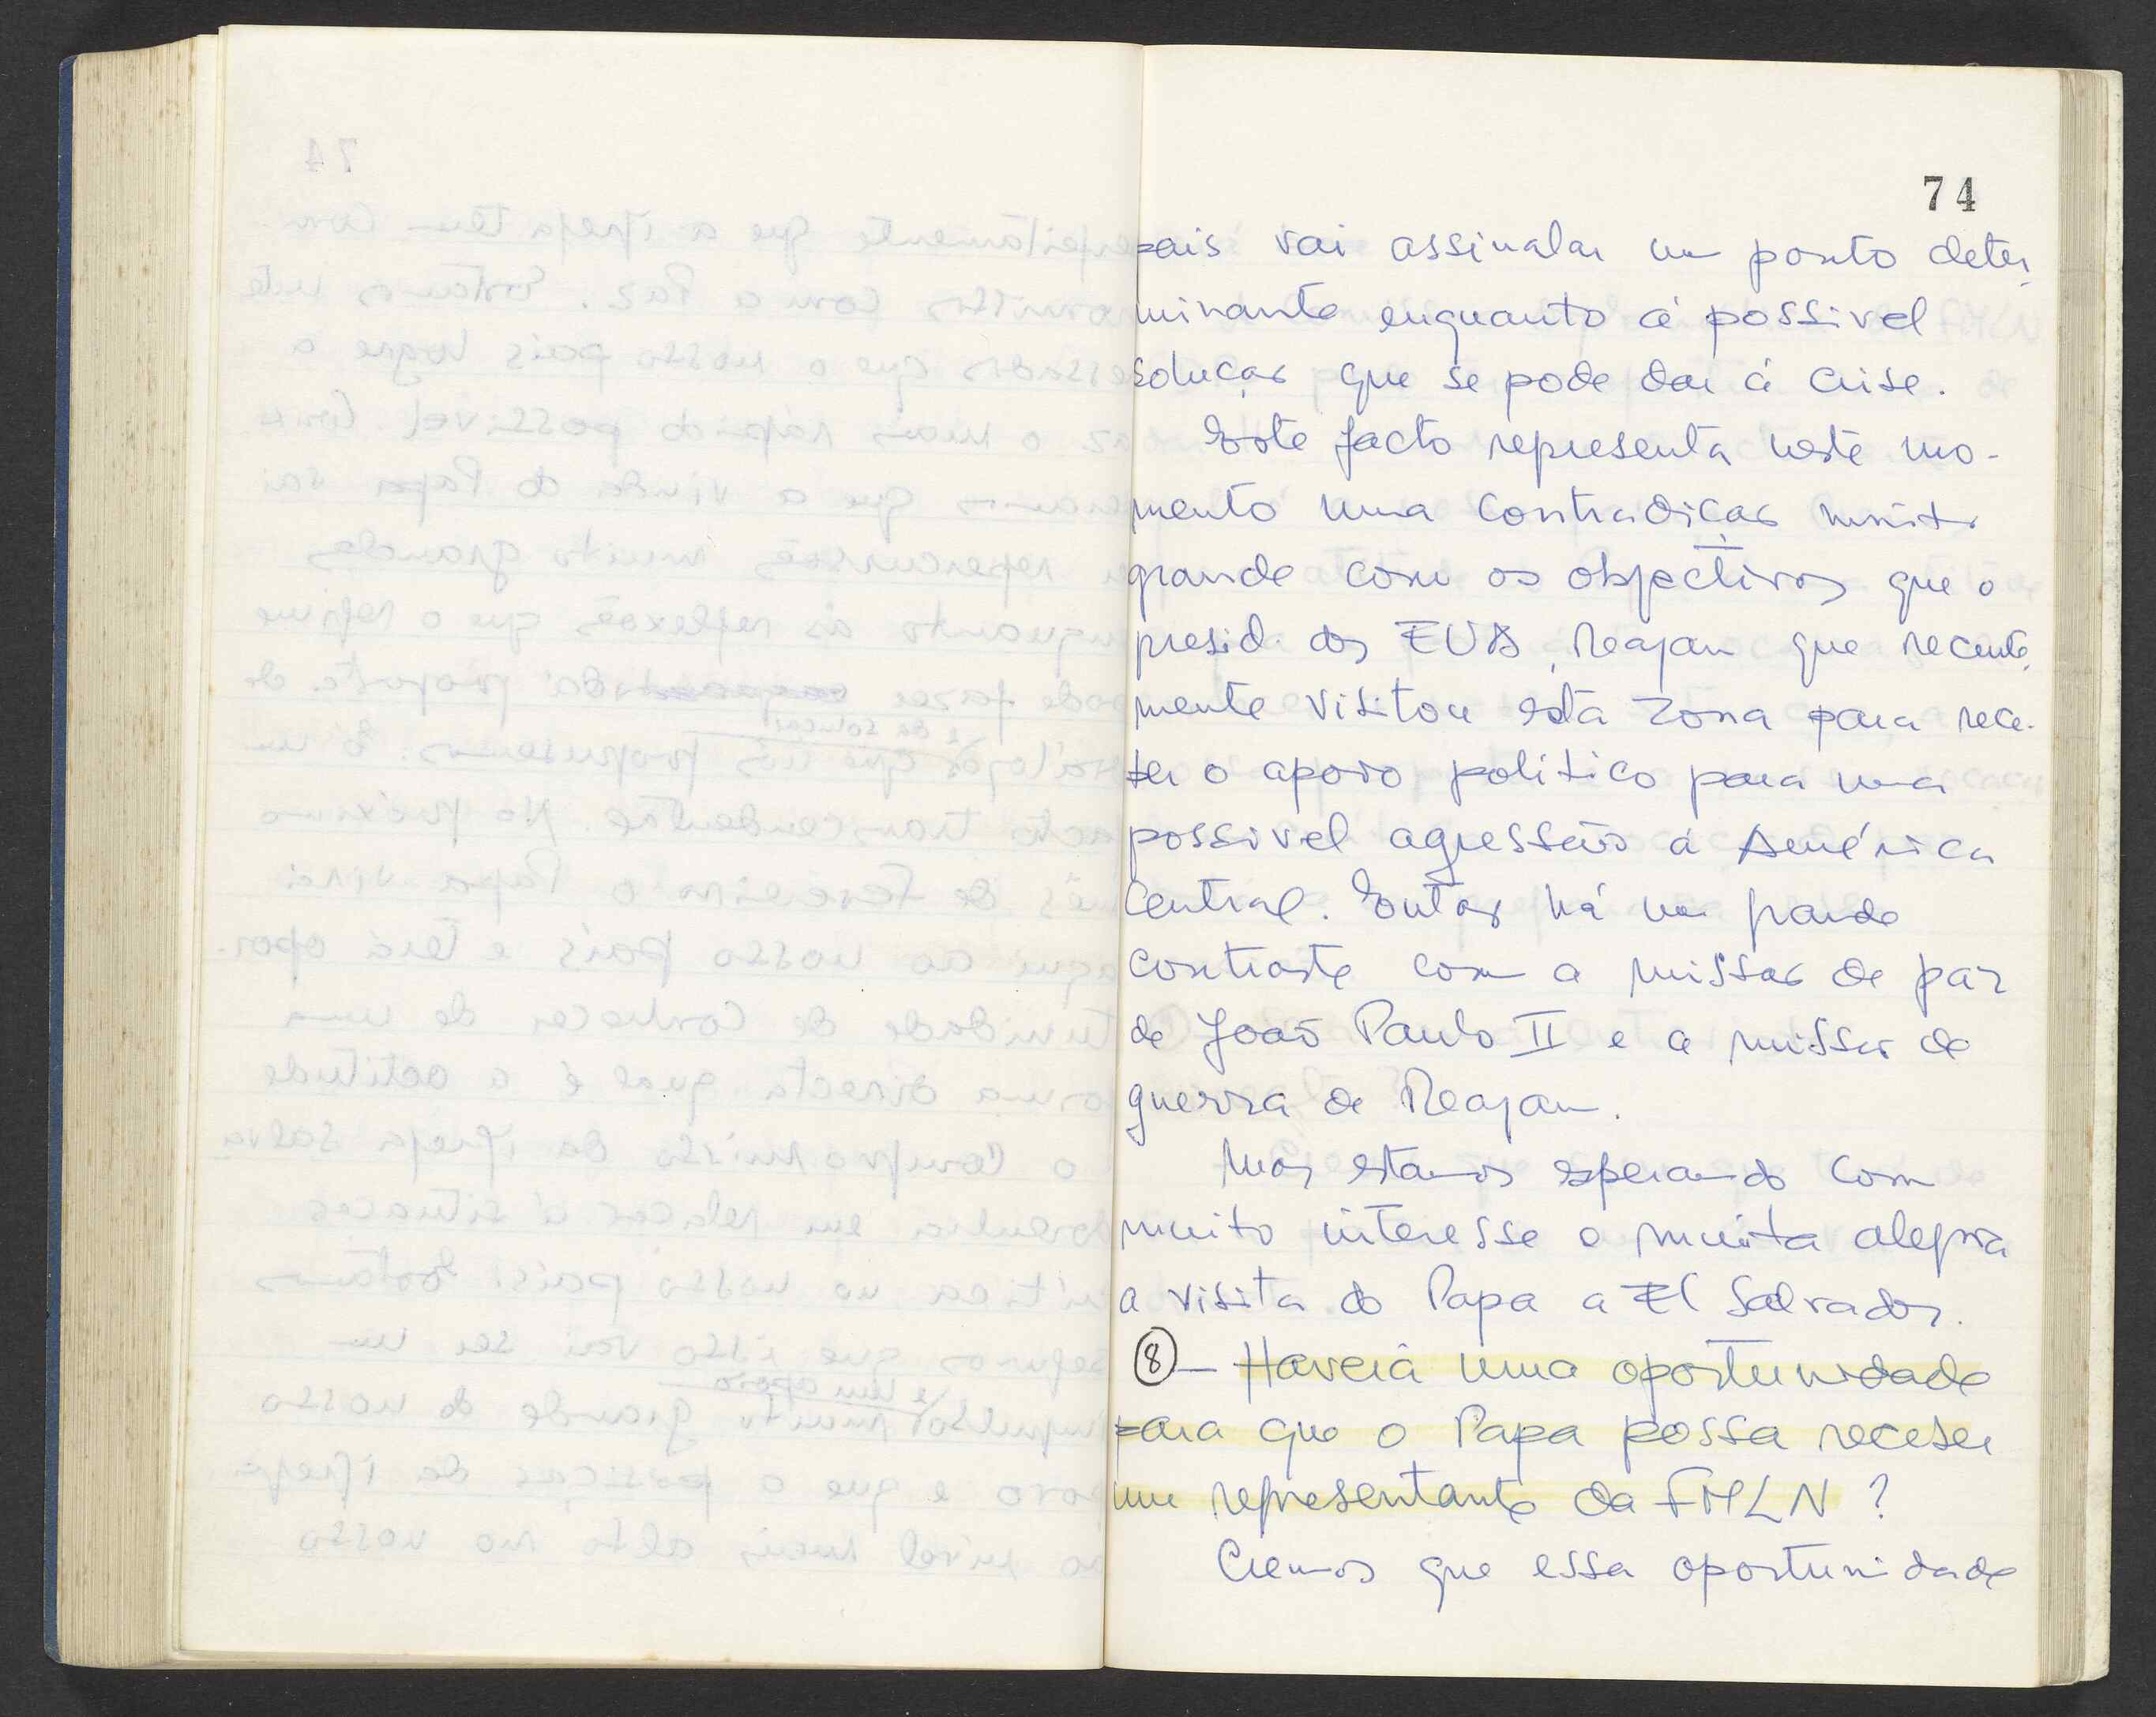 74
pais vai assinalar um ponto deter,
minante enquanto á possivel
solução que se pode dar á crise.
Este facto representa neste mo-
mento uma contradição muito
grande com os objectivos que o
presid. dos EUA, Reagan que recente,
mente visitou esta zona para rece-
ber o apoio politico para uma
possivel agressão á América
Central. Então há um grande
contraste com a missão de paz
de João Paulo II e a missão de
guerra de Reagan.
Mas estamos esperando com
muito interesse e muita alegria
a visita do Papa a El Salvador.
8 - Haverá uma oportunidade
para que o Papa possa receber
um representante da FMLN ?
Cremos que essa oportunidade